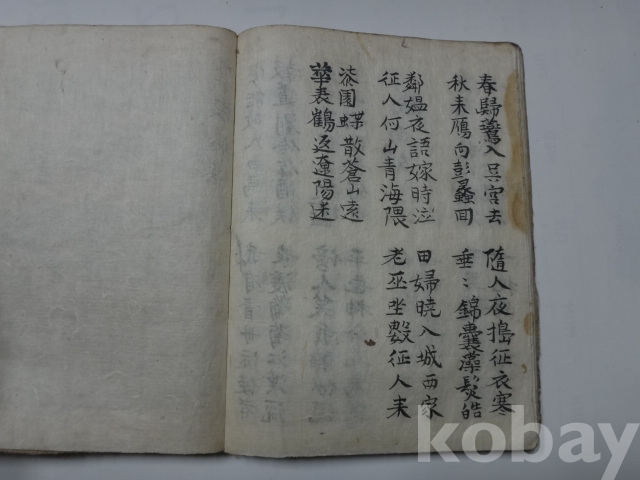 春歸鶯入吳宮去
秋來鴈向彭蠡回
鄰媼夜語嫁時泣
征人何山青海隈
漆園蝶散蒼山遠
華表鶴返遼陽迷
隨人夜搗征衣寒
垂〻錦囊藻髮皓
田婦曉入城西家
老巫坐數征人來
kobay